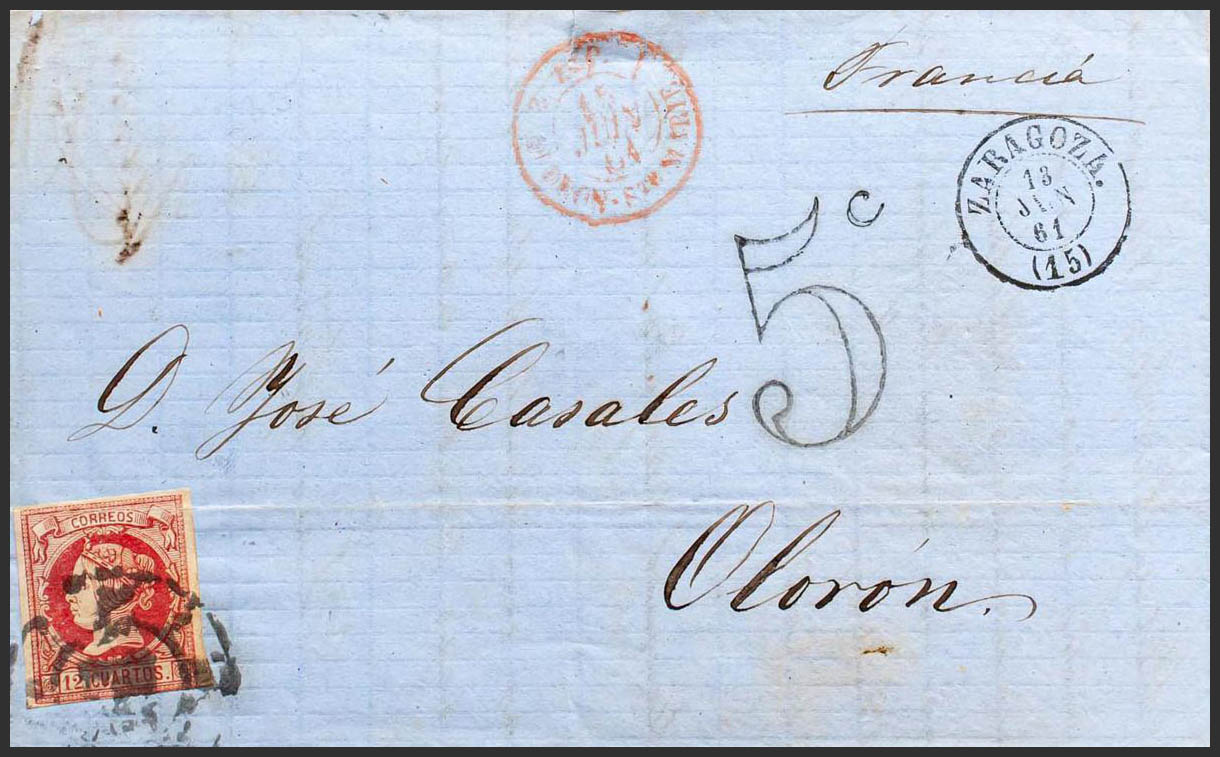 Franciá
ZARAGOZA.
13
JUN
61
(15)
15
JUIN
61
5c
D. José Casales
Olorón.
CORREOS
12 CUARTOS.